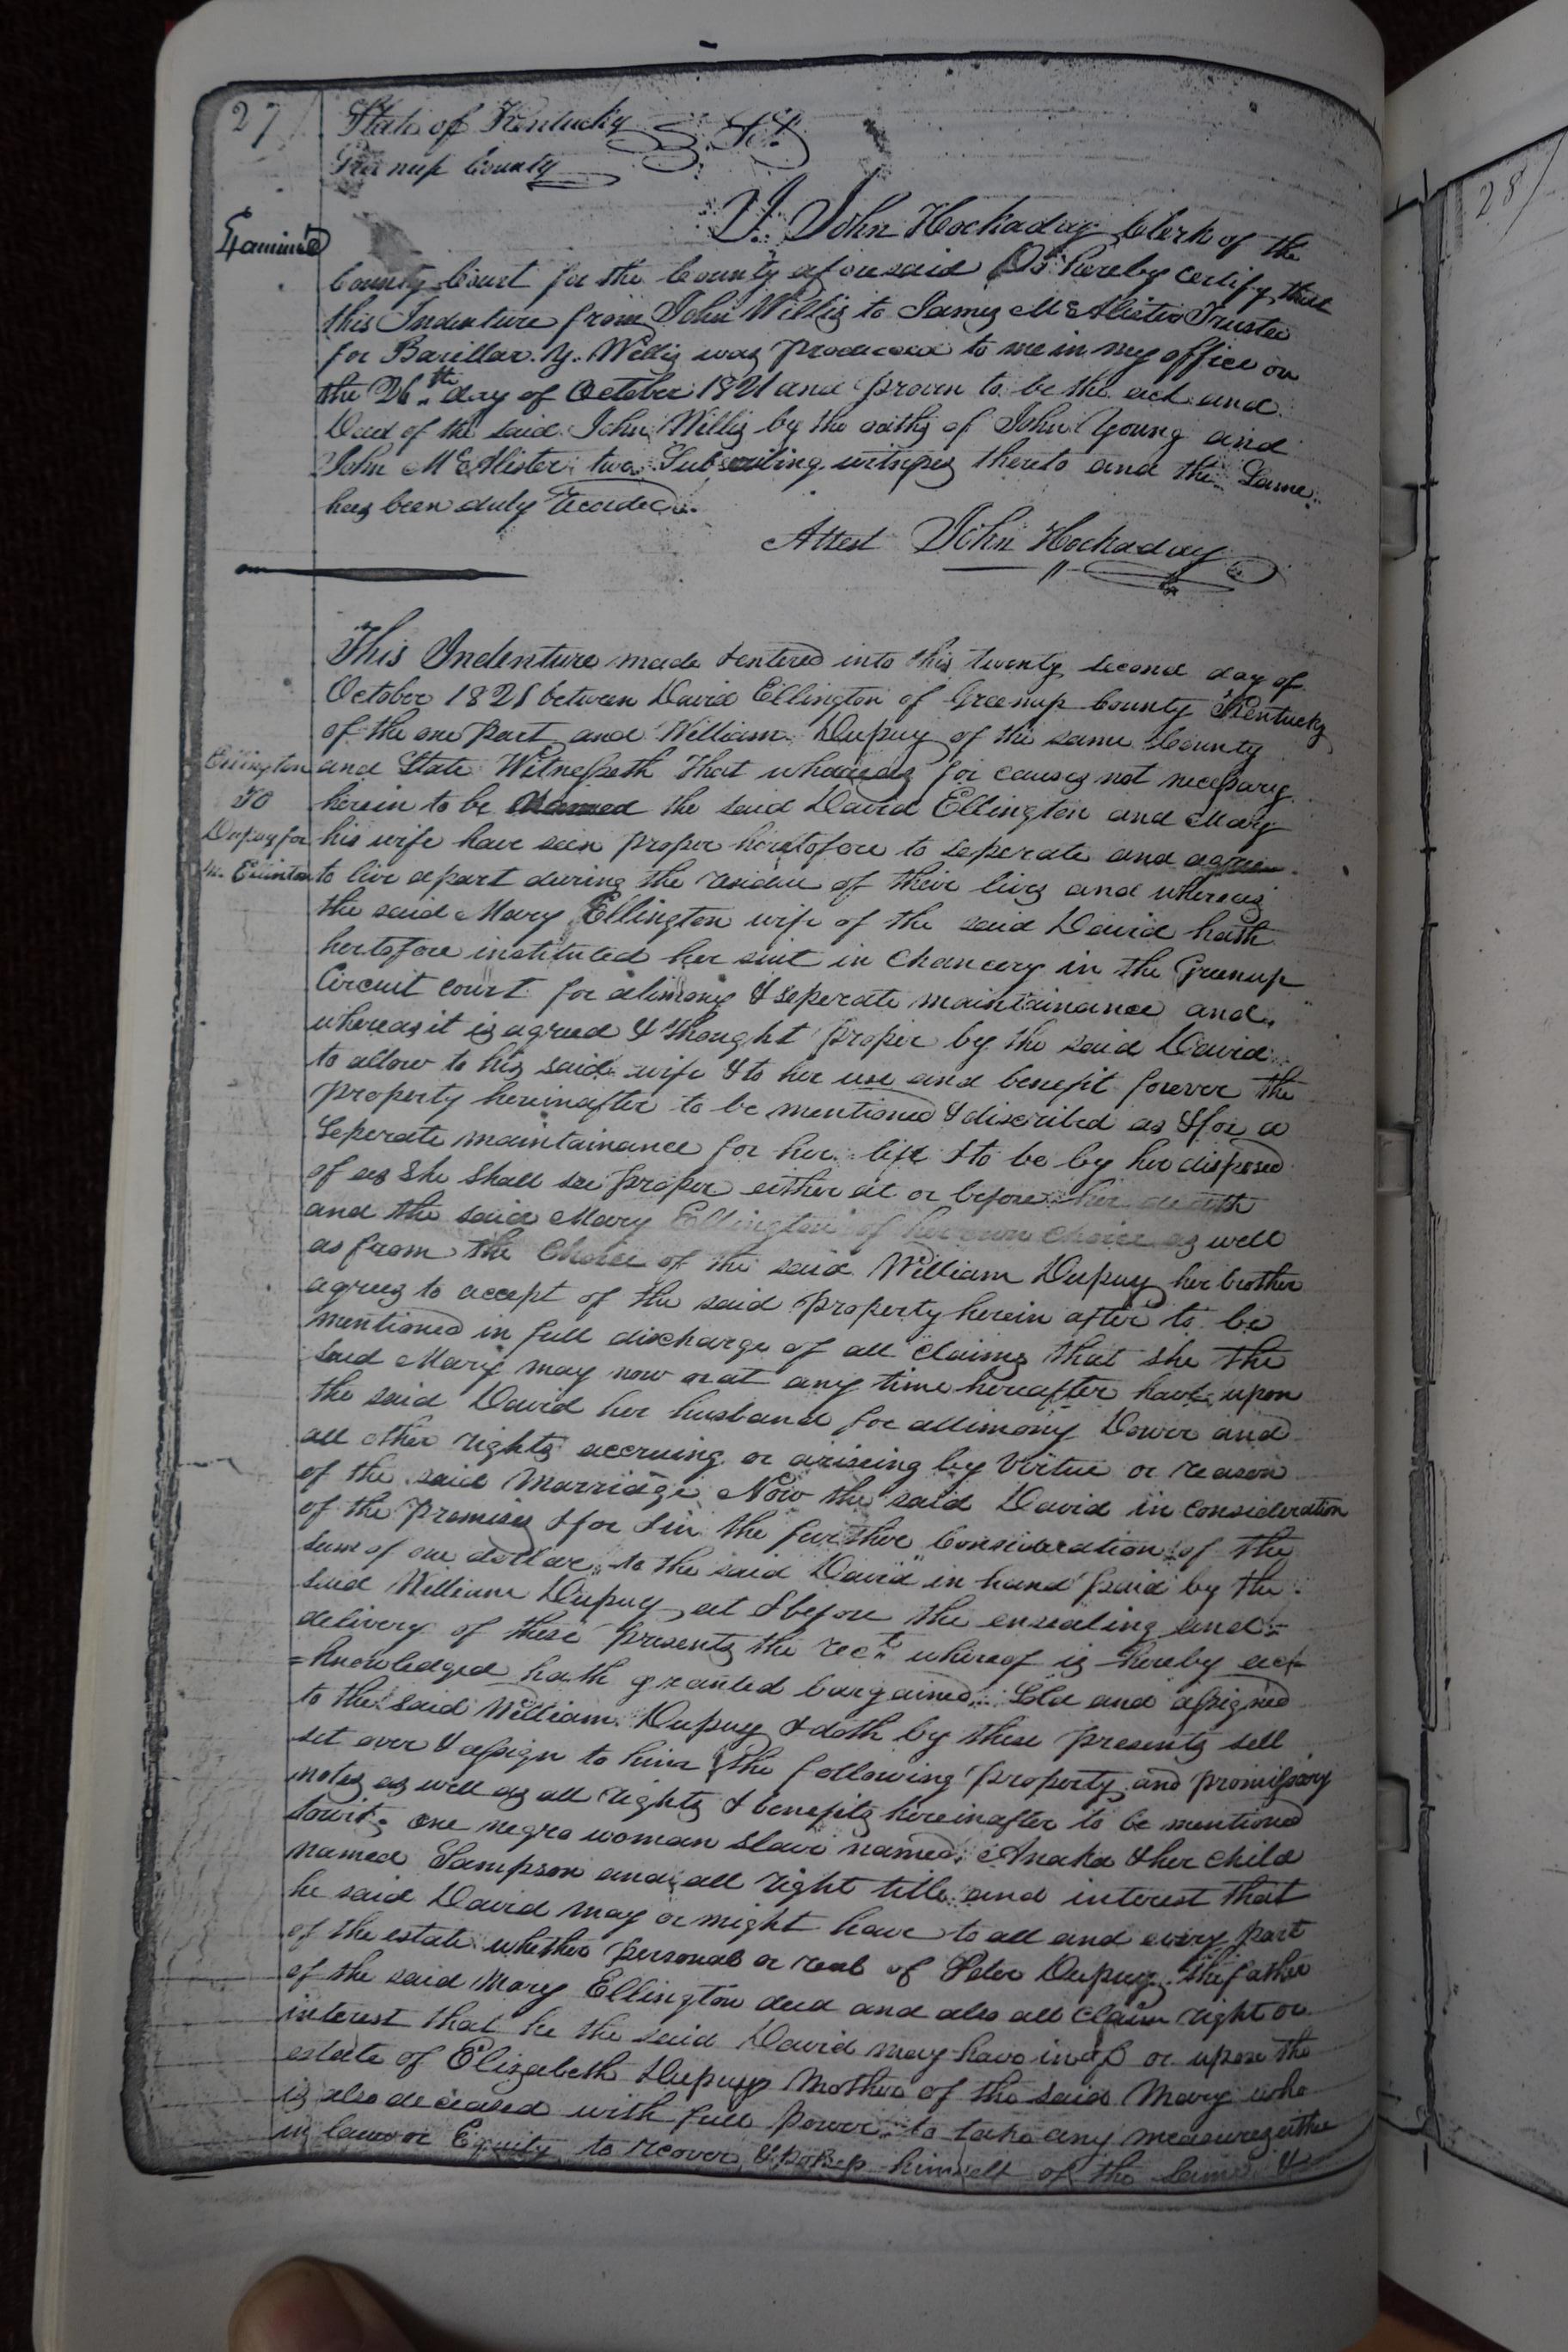 27
State of Kentucky
Greenup County Sct.
Examined
I John Hockaday Clerk of the
County Court for the County aforesaid Do hereby certify that
this Indenture from John Willis to James McAlister Trustee
for Y. Willis was produced to me in my office on
the 26th day of October 1821 and proven to be the act and
Deed of the said John Willis by the oaths of John Young and
John McAlister two Subscribing witnesses thereto and the Same
has been duly recorded.
Attest John Hockaday
This Indenture made & entered into this twenty second day of
October 1821 between David Ellington of Greenup County Kentucky
of the one part and William Dupuy of the same County
Ellington
TO
Dupuy for
Ellinton
and State Witnesseth That whereas for causes not necessary
herein to be named the said David Ellington and Mary
his wife have seen proper heretofore to seperate and agree
to live apart during the residue of their lives and whereas
the said Mary Ellington wife of the said David hath
hertofore instituted her suit in Chancery in the Greenup
Circuit court for alimony & seperate maintainance and
whereas it is agreed & thought proper by the said David
to allow to his said wife & to her use and benefit forever the
property hereinafter to be mentioned & discribed as & for a
Seperate maintainance for her life & to be by her disposed
of as she shall see proper either at or before her death
and the said Mary Ellington of her own choice as well
as from the Choice of the said William Dupuy her brother
agrees to accept of the said property herein after to be
mentioned in full discharge of all claims that she the
said Mary may now or at any time hereafter have upon
the said David her husband for allimony Dower and
all other rights accruing or ariseing by Virtue or reason
of the said Marriage Now the said David in consideration
of the premises & for & in the further Consideration of the
sum of one dollar to the said David in hand paid by the
said William Dupuy at & before the ensealing and
delivery of these presents the rect. whereof is hereby ack
=knowledged hath granted bargained Sold and assigned
to the said William Dupuy & doth by these presents sell
set over & assign to him the following property and promissory
notes as well as all rights & benefits hereinafter to be mentioned
towit, one negro woman slave named Anaka & her child
named Sampson and all right title and interest that
he said David may or might have to all and every part
of the estate whether personal or real of Peter Dupuy the father
of the said Mary Ellington decd and also all claim right or
interest that he the said David may have in & or upon the
estate of Elizabeth Dupuy Mother of the said Mary who
is also deceased with full power to take any measures eithe
in law or Equity to recover & possess himself of the same &
28